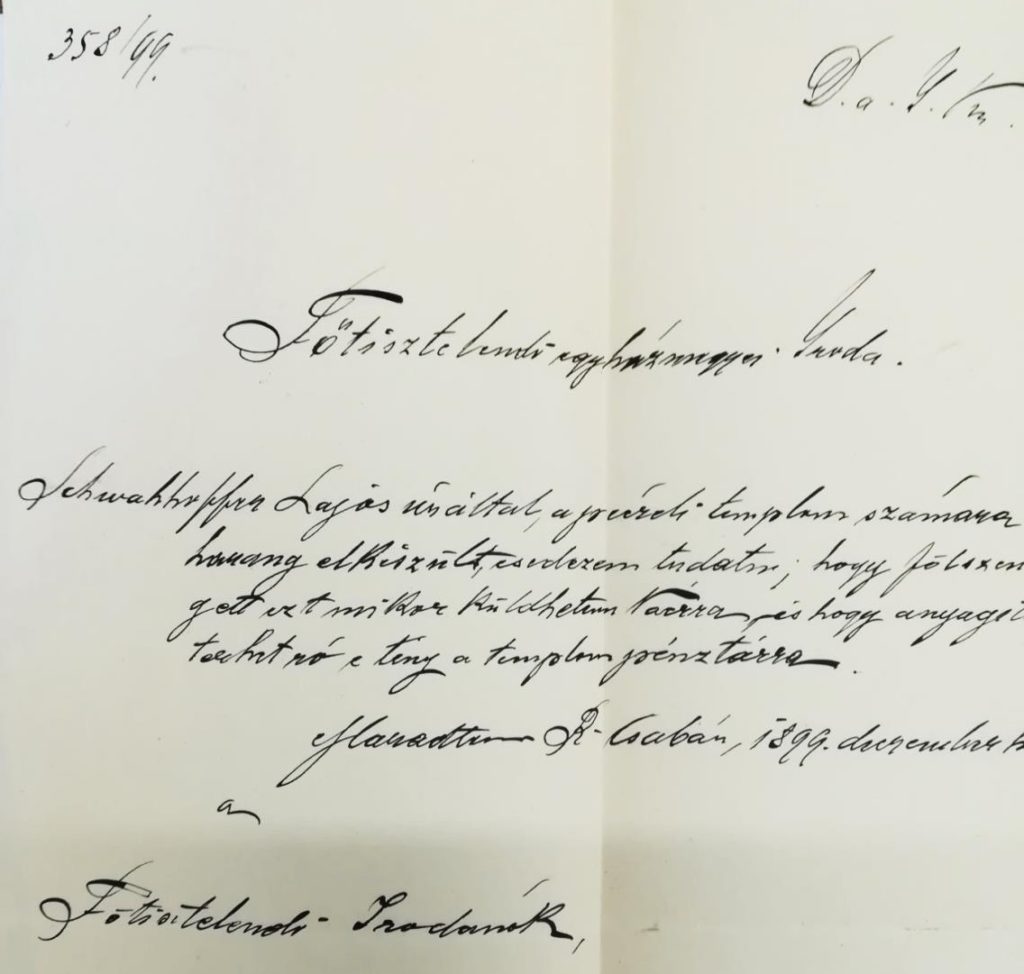 358/99.
D. a. J. Kr.
Főtisztelendő egyházmegyei Iroda.
Schwahhoffer Lajos úr által, a péczeli templom számára
harang elkészült, esedezem tudatni, hogy fölszen
gett ezt mikor küldhetem Váczra, és hogy anyagi
terhet ró e tény a templom pénztárra.
Maradtam R. Csabán, 1899. deczember
a
Főtisztelendő Irodának,